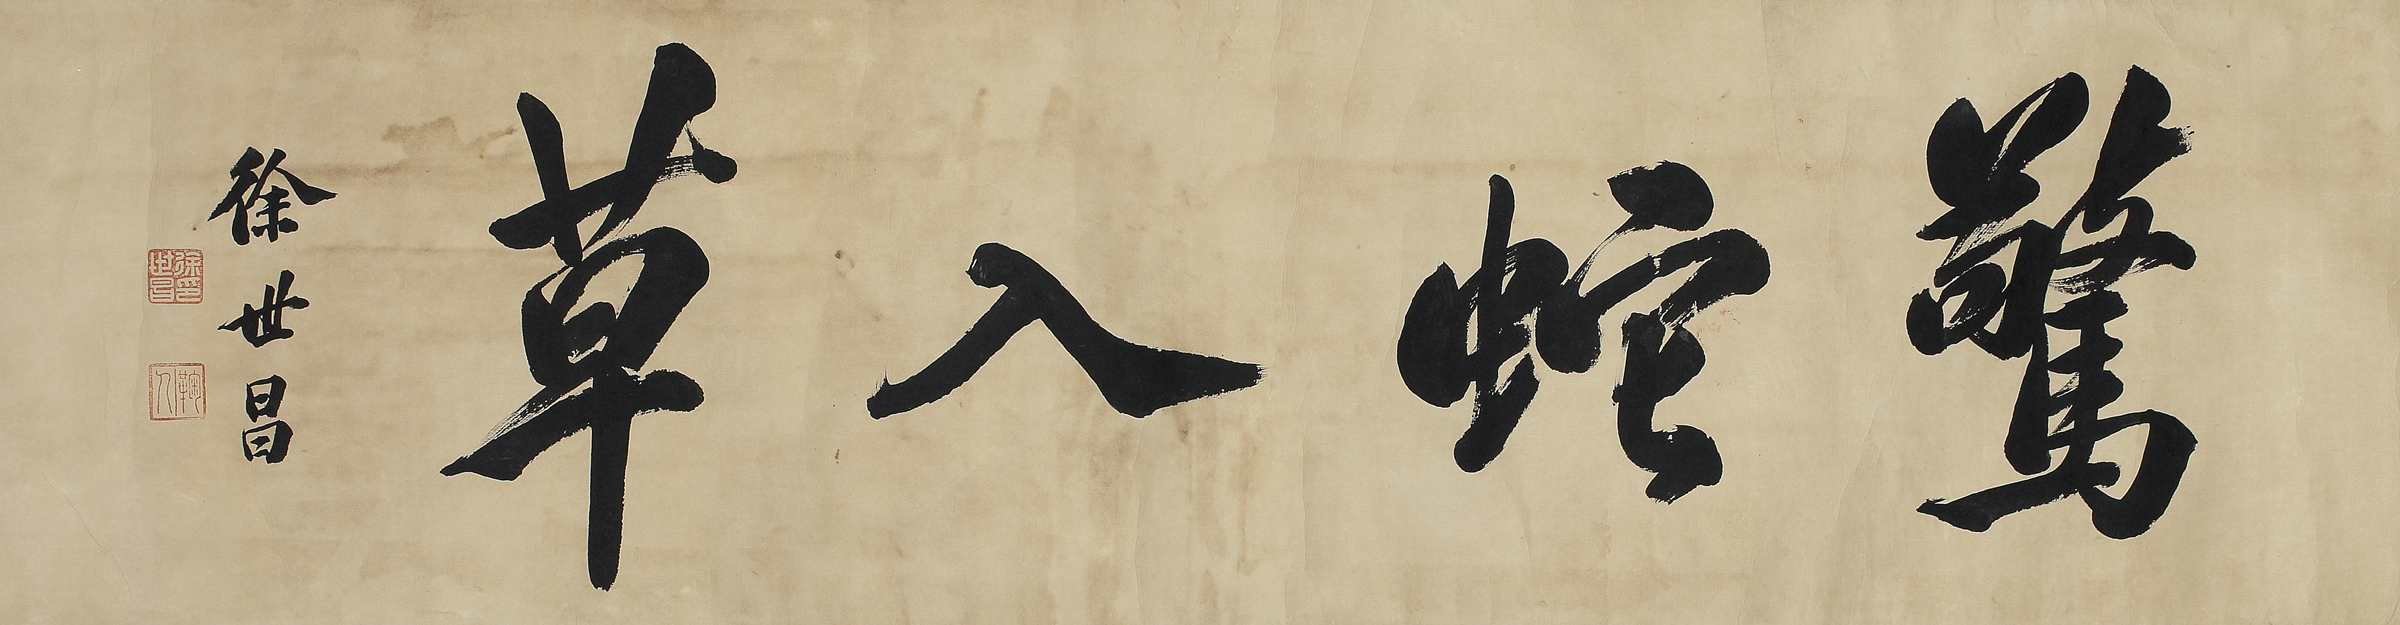 驚蛇入草
徐世昌
徐世昌印
鞠人